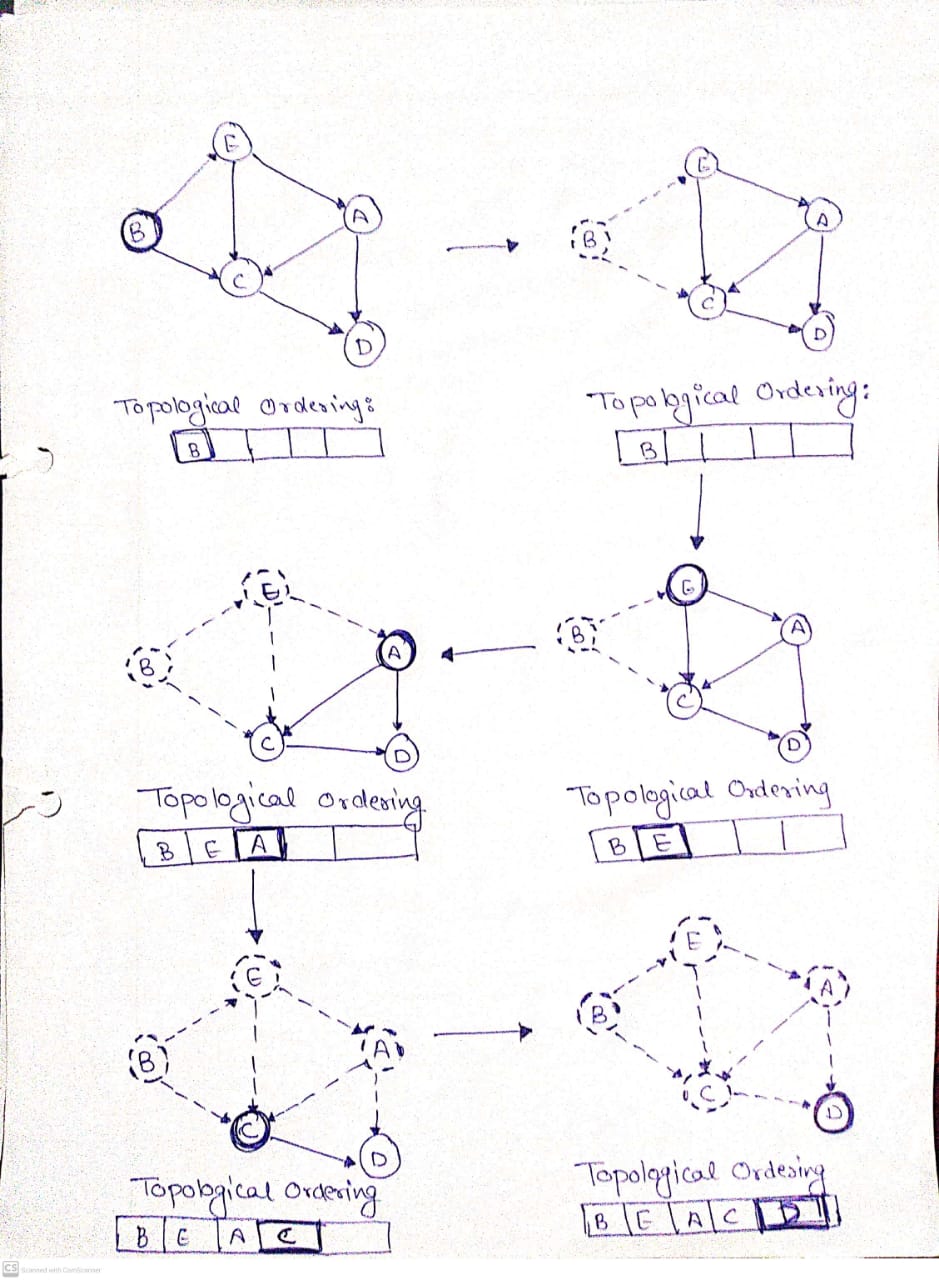 E
B
A
C
D
Topological Ordering:
B
E
B
A
C
D
Topological Ordering:
B
E
B
A
C
D
Topological Ordering
B E
E
B
A
C
D
Topological Ordering
B E A
E
B
A
C
D
Topological Ordering
B E A C
E
B
A
C
D
Topological Ordering
B E A C D
CS Scanned with CamScanner